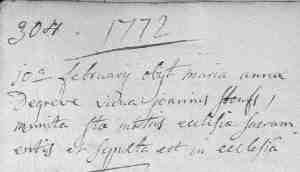 304. 1772
10a february obyt maria anna
Degreve vidua joannis
munita sta matris ecclesia sacram
entis et sepulta est in ecclesia